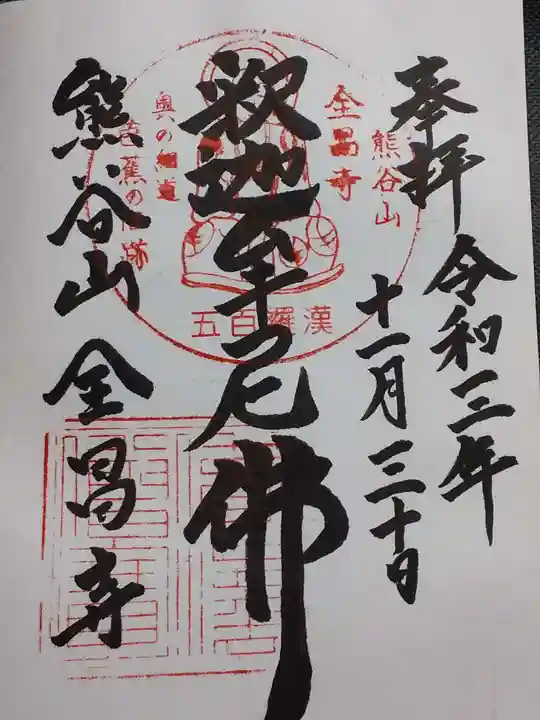 奉拝
令和三年
十一月三十日
釈迦牟尼佛
熊谷山 全昌寺
熊谷山
全昌寺
奥の細道
芭蕉の
跡
五百羅漢